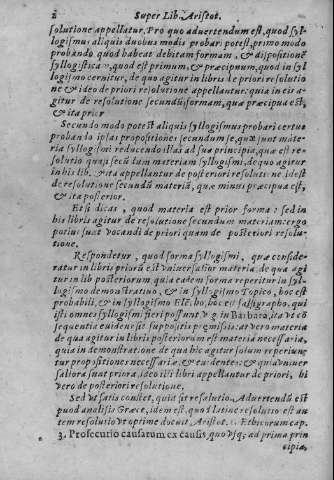 2 Super Lib. Aristot.
solutione appellatur. Pro quo aduertendum est, quod syl-
logismus aliquis duobus modis probari potest, primo modo
probando quod habeat debitam formam, & dispositionē
syllogisticā, quod est primum, & præcipuum, quod in syl
logismo cernitur, de quo agitur in libris de priori resolutio
ne & ideo de priori resolutione appellantur: quia in eis a-
gitur de resolutione secundū formam, quæ præcipua est,
& ita prior
Secundo modo potest aliquis syllogismus probari certus
probando ipsas propositiones secundum se, quæ sunt mate
ria syllogismi reducendo illas ad sua principia, quæ est re-
solutio quasi secūdum materiam syllogismi, de quo agitur
in his lib. & ita appellantur de posteriori resolutione. id est
de resolutione secundū materiā, quæ minus præcipua est,
& ita posterior.
Et si dicas, quod materia est prior forma: sed in
his libris agitur de resolutione secundum materiam: ergo
potius sunt vocandi de priori quam de posteriori resolu-
tione.
Respondetur, quod forma syllogismi, quæ conside-
ratur in libris priorū est vniuersalior materia de qua agi
tur in lib posteriorum quia eadem forma reperitur in syl-
logismo demonstratiuo, & in syllogismo Topico, hoc est
probabili, & in syllogismo Elēcho, hoc est falsigrapho, qui
isti omnes syllogismi fieri possunt v g in Barbara, ita vt cō
sequentia euidens sit suppositis præmissis: at vero materia
de qua agitur in libris posteriorum est materia necessaria,
quia in demonstratione de qua hic agitur solum reperiun-
tur propositiones necessariæ, & euidentes: & quia vniuer
saliora sunt priora, ideo illi libri appellantur de priori, hi
vero de posteriori resolutione.
Sed vt satis constet, quid sit resolutio. Aduertendū est
quod analisis Græce, idem est, quod latine resolutio est au
tem resolutio vt optime docuit Aristot. Ethicorum cap.
3. Prosecutio causarum ex causis, quo vsq; ad prima prin
cipia,